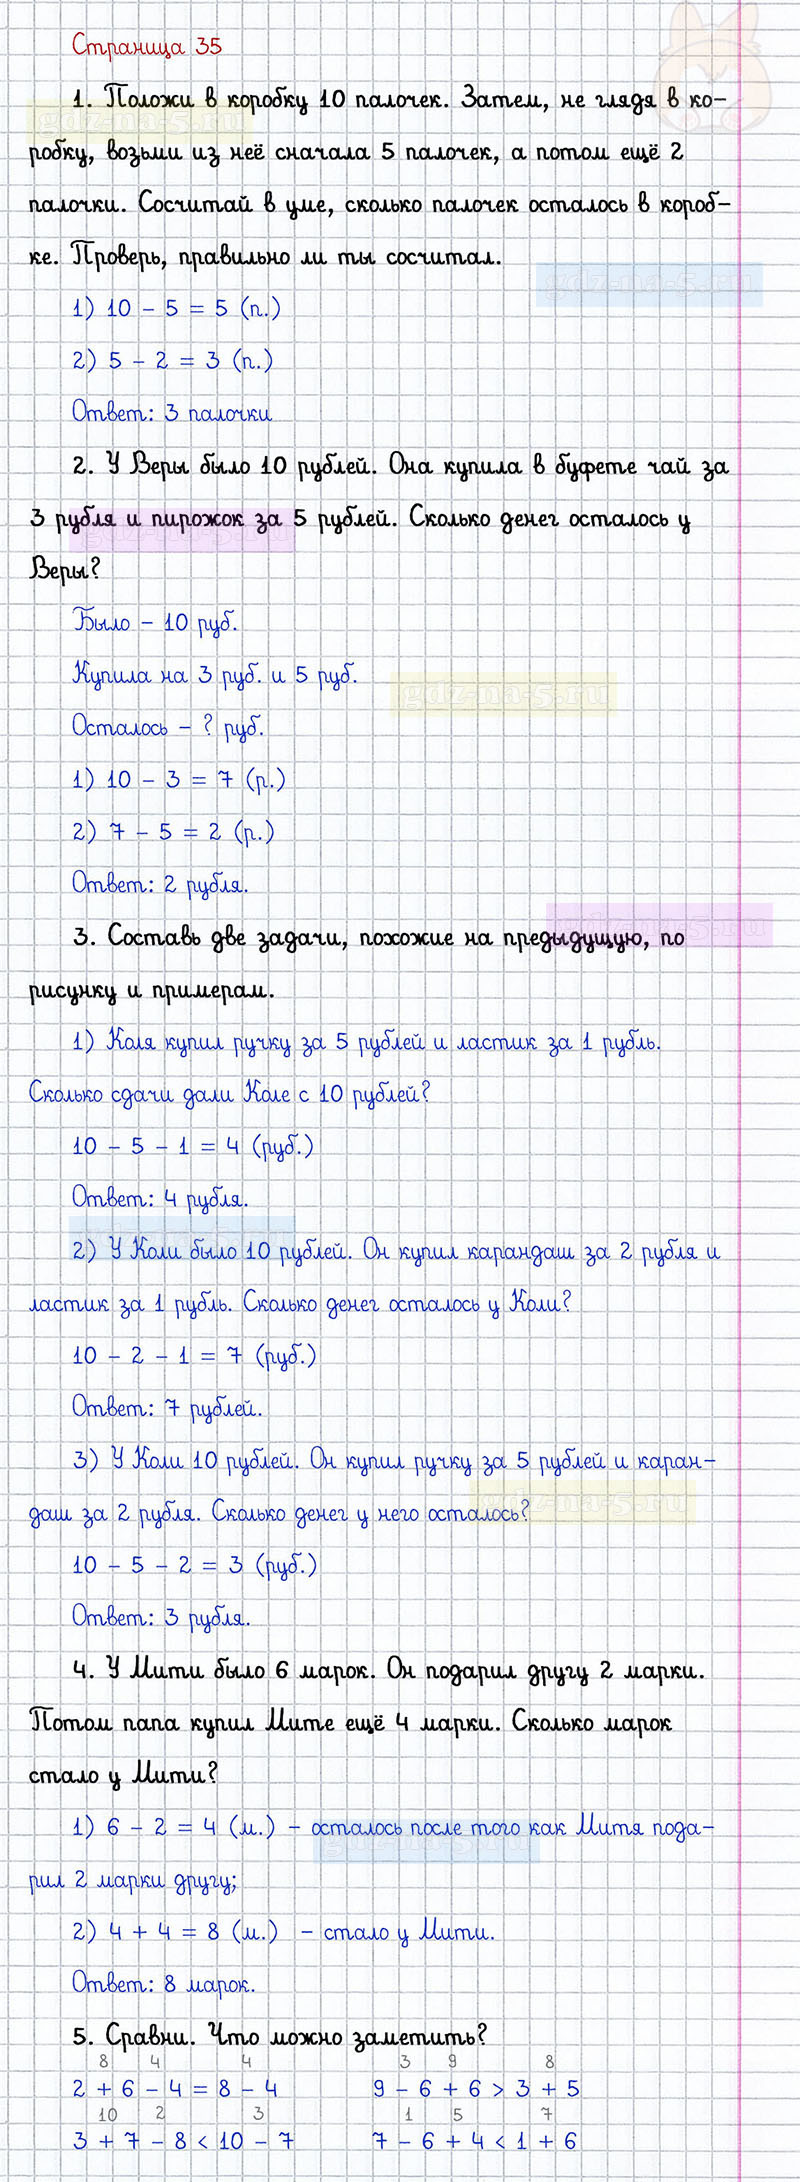 Страница 35
1. Положи в коробку 10 палочек. Затем, не глядя в ко-
gdz-na-5.ru
робку, возьми из неё сначала 5 палочек, а потом ещё 2
палочки. Сосчитай в уме, сколько палочек осталось в короб-
ке. Проверь, правильно ли ты сосчитал.
gdz-na-5.ru
1) 10 - 5 = 5 (п.)
2) 5 - 2 = 3 (п.)
Ответ: 3 палочки
2. У Веры было 10 рублей. Она купила в буфете чай за
3 рубля и пирожок за 5 рублей. Сколько денег осталось у
gdz-na-5.ru
Веры?
Было - 10 руб.
Купила на 3 руб. и 5 руб.
gdz-na-5.ru
Осталось - ? руб.
1) 10 - 3 = 7 (р.)
2) 7 - 5 = 2 (р.)
Ответ: 2 рубля.
gdz-na-5.ru
3. Составь две задачи, похожие на предыдущую, по
рисунку и примерам.
1) Коля купил ручку за 5 рублей и ластик за 1 рубль.
Сколько сдачи дали Коле с 10 рублей?
10 - 5 - 1 = 4 (руб.)
Ответ: 4 рубля.
gdz-na-5.ru
2) У Коли было 10 рублей. Он купил карандаш за 2 рубля и
ластик за 1 рубль. Сколько денег осталось у Коли?
10 - 2 - 1 = 7 (руб.)
Ответ: 7 рублей.
3) У Коли 10 рублей. Он купил ручку за 5 рублей и каран-
gdz-na-5.ru
даш за 2 рубля. Сколько денег у него осталось?
10 - 5 - 2 = 3 (руб.)
Ответ: 3 рубля.
4. У Мити было 6 марок. Он подарил другу 2 марки.
Потом папа купил Мите ещё 4 марки. Сколько марок
стало у Мити?
1) 6 - 2 = 4 (м.) - осталось после того как Митя пода-
gdz-na-5.ru
рил 2 марки другу;
2) 4 + 4 = 8 (м.) - стало у Мити.
Ответ: 8 марок.
5. Сравни. Что можно заметить?
8 4 4 3 9 8
2 + 6 - 4 = 8 - 4 9 - 6 + 6 > 3 + 5
10 2 3 1 5 7
3 + 7 - 8 < 10 - 7 7 - 6 + 4 < 1 + 6